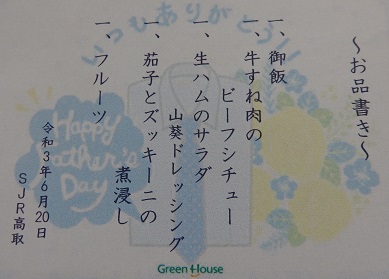 いつもありがとう!!
〜お品書き〜
一、御飯
一、牛すね肉の
ビーフシチュー
一、生ハムのサラダ
山葵ドレッシング
一、茄子とズッキーニの
煮浸し
一、フルーツ
令和3年6月20日
SJR高取
Happy
Father's
Day
Green House